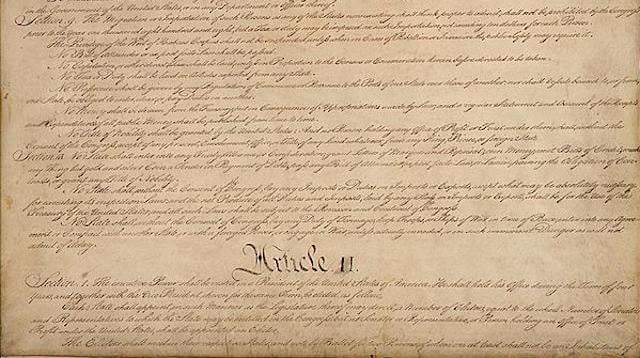 the Government of the United States, or in any Department or Officer thereof.
Section. 9. The Migration or Importation of such Persons as any of the States now existing shall think proper to admit, shall not be prohibited by the Congress
prior to the Year one thousand eight hundred and eight, but a Tax or duty may be imposed on such Importation, not exceeding ten dollars for each Person.
The Privilege of the Writ of Habeas Corpus shall not be suspended, unless when in Cases of Rebellion or Invasion the public Safety may require it.
No Bill of Attainder or ex post facto Law shall be passed.
No Capitation, or other direct, Tax shall be laid, unless in Proportion to the Census or Enumeration herein before directed to be taken.
No Tax or Duty shall be laid on Articles exported from any State.
No Preference shall be given by any Regulation of Commerce or Revenue to the Ports of one State over those of another: nor shall Vessels bound to, or from,
one State, be obliged to enter, clear, or pay Duties in another.
No Money shall be drawn from the Treasury, but in Consequence of Appropriations made by Law; and a regular Statement and Account of the Receipts
and Expenditures of all public Money shall be published from time to time.
No Title of Nobility shall be granted by the United States: And no Person holding any Office of Profit or Trust under them, shall, without the
Consent of the Congress, accept of any present, Emolument, Office, or Title, of any kind whatever, from any King, Prince, or foreign State.
Section. 10. No State shall enter into any Treaty, Alliance, or Confederation; grant Letters of Marque and Reprisal; coin Money; emit Bills of Credit; make
any Thing but gold and silver Coin a Tender in Payment of Debts; pass any Bill of Attainder, ex post facto Law, or Law impairing the Obligation of Con-
tracts, or grant any Title of Nobility.
No State shall, without the Consent of the Congress, lay any Imposts or Duties on Imports or Exports, except what may be absolutely necessary
for executing it's inspection Laws: and the net Produce of all Duties and Imposts, laid by any State on Imports or Exports, shall be for the Use of the
Treasury of the United States; and all such Laws shall be subject to the Revision and Controul of the Congress.
No State shall, without the Consent of Congress, lay any Duty of Tonnage, keep Troops, or Ships of War in time of Peace, enter into any Agree-
ment or Compact with another State, or with a foreign Power, or engage in War, unless actually invaded, or in such imminent Danger as will not
admit of delay.
Article. II.
Section. 1. The executive Power shall be vested in a President of the United States of America. He shall hold his Office during the Term of four
Years, and, together with the Vice President, chosen for the same Term, be elected, as follows
Each State shall appoint, in such Manner as the Legislature thereof may direct, a Number of Electors, equal to the whole Number of Senators
and Representatives to which the State may be entitled in the Congress: but no Senator or Representative, or Person holding an Office of Trust or
Profit under the United States, shall be appointed an Elector.
The Electors shall meet in their respective States, and vote by Ballot for two Persons, of whom one at least shall not be an Inhabitant of